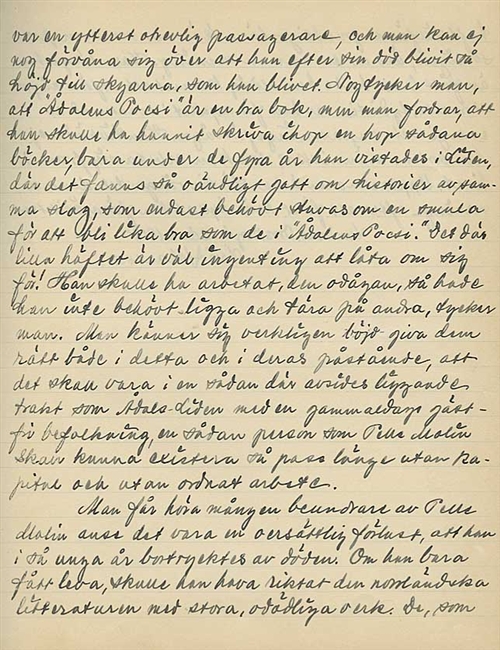 var en ytterst otrevlig passagerare, och man kan ej
nog förvåna sig över att han efter sin död blivit så
höjd till skyarna, som han blivit. Nog tycker man,
att "Ådalens Poesi" är en bra bok, men man fordrar, att
han skulle ha hunnit skriva ihop en hop sådana
böcker, bara under de fyra år han vistades i Liden,
där det fanns så oändligt gott om historier av sam-
ma slag, som endast behövt stuvas om en smula
för att bli lika bra som de i "Ådalens Poesi." Det där
lilla häftet är väl ingenting att låta om sig
för! Han skulle ha arbetat, den odågan, så hade
han inte behövt ligga och tära på andra, tycker
man. Man känner sig verkligen böjd giva dem
rätt både i detta och i deras påstående, att
det skall vara i en sådan där avsides liggande
trakt som Ådals-Liden med en gammaldags gäst-
fri befolkning, en sådan person som Pelle Molin
skall kunna existera så pass länge utan ka-
pital och utan ordnat arbete.
Man får höra mången beundrare av Pelle
Molin anse det vara en oersättlig förlust, att han
i så unga år bortrycktes av döden. Om han bara
fått leva, skulle han hava riktat den norrländska
litteraturen med stora, odödliga verk. De, som